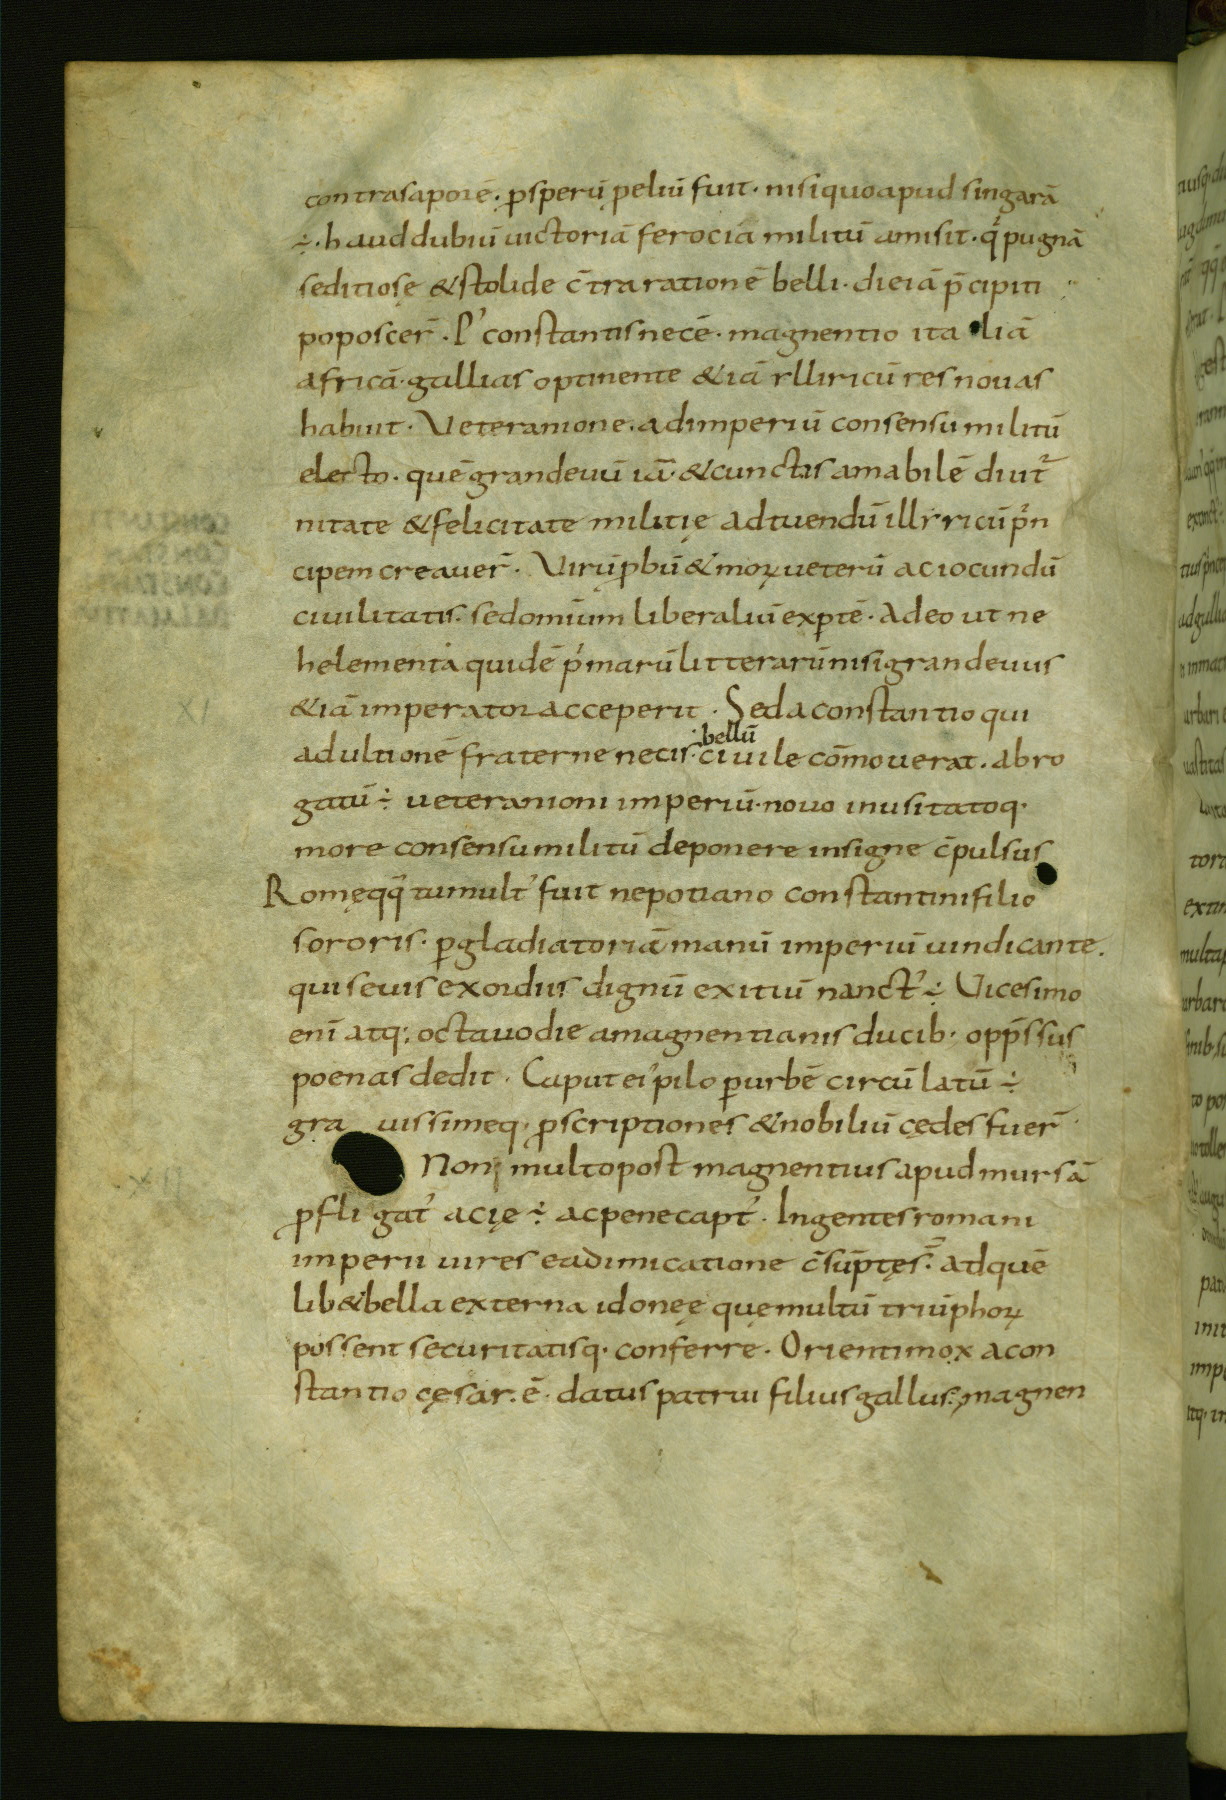 contrasaporē. ꝑsperū peliū fuit. nisi quo apud singarā
÷. haud dubiū uictoriā ferociā militū amisit. q̇ pugnā
seditiosę & stolide c̄tra rationē belli. die iā p̄cipiti
poposcer̄. P' constantis necē. magnentio ita liā
africā. gallias optinente & iā rlliricū res nouas
habuit. Veteranione. ad imperiū consensu militū
electo. quē grandeuū iā. & cunctis amabilē diuit̄
nitate & felicitate militię ad tuendū illrricū ṗn
cipem creauer̄. Virū ꝓbū & moꝝ ueterū ac iocundū
ciuilitatis. sed omīum liberaliū exꝑtē. Adeo ut ne
helementa quidē p̍marū litterarū nisi grandeuus
& iā imperator acceperit. Sed a constantio qui
ad ultionē fraterne necis. bellū ciuile cōmouerat. abro
gatū ÷ ueteranioni imperiū. nouo inusitatoq.
more consensu militū deponere insigne c̄pulsus
Romę qq̄ tumult' fuit nepotiano constantini filio
sororis. ꝑ gladiatoriā manū imperiū uindicante.
qui seuis exordiis dignū exitiū nanct' ÷ Vicesimo
enī atq; octauo die a magnentianis ducib. opp̄ssus
poenas dedit. Caput ei' pilo ꝑ urbē circūlatū ÷
gra uissimeq. ꝓscriptiones & nobiliū cędes fuer̄
Non multo post magnentius apud mursā
ꝓfli gat' acię ÷ ac pene capt'. Ingentes romani
imperii uires ea dimicatione c̄sūptęs ÷ ad quē
lib& bella externa idoneę quę multū triūphoꝝ
possent securitatisq. conferre. Orienti mox a con
stantio cęsar. ē. datus patrui filius gallus. magnen